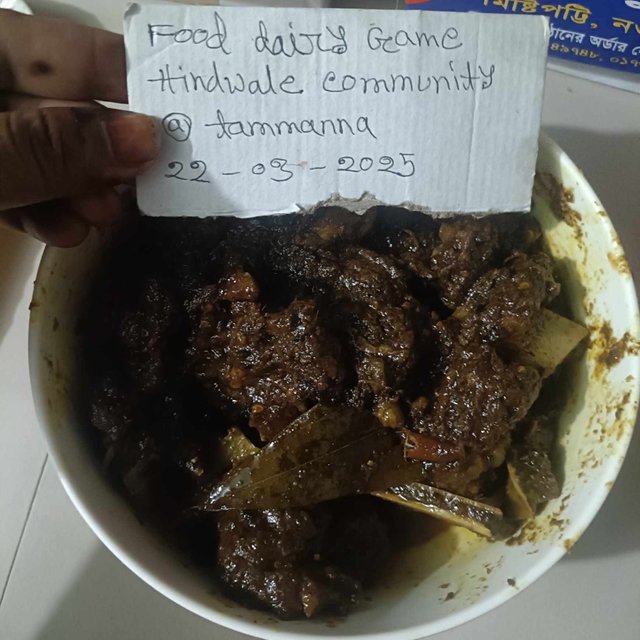 Food dairy Game
Hindwale community
@ tammanna
22-03-2025
মিষ্টিপট্টি,
অর্ডার